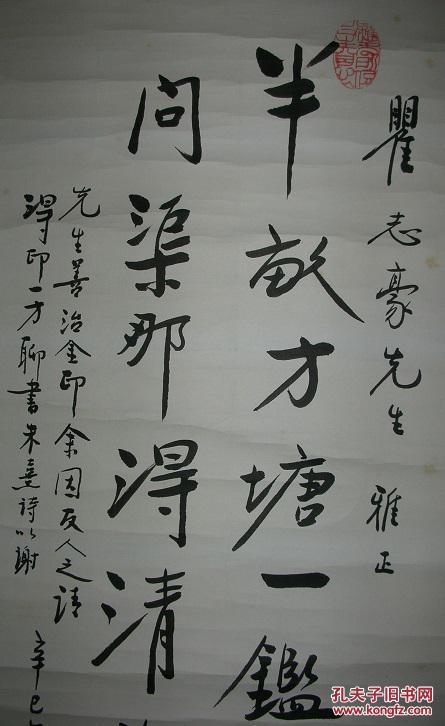 瞿志豪先生 雅正
半畝方塘一鑑
问渠那得清
先生善治金印余因友人之请
得印一方聊書朱熹诗以谢
辛巳
孔夫子旧书网
www.kongfz.com